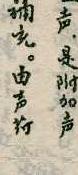 声，是附加声
补充。由声符